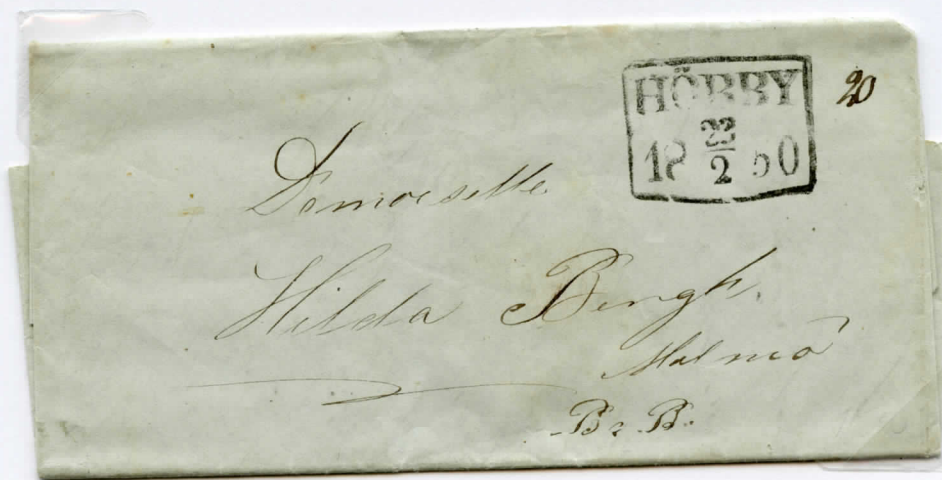 HÖRBY
18 22/2 50
20
Demoiselle
Hilda Bergh
Malmö
Bz. B.